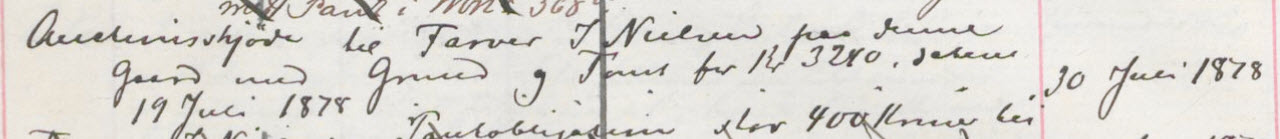 med Pant i Mtr 368
Auctionsskjöde til Farver I Nielsen paa denne
Gaard med Grund og Tomt for Kr 3240, dateret
19 Juli 1878
30 Juli 1878
Pantobligation stor 400 Kroner til